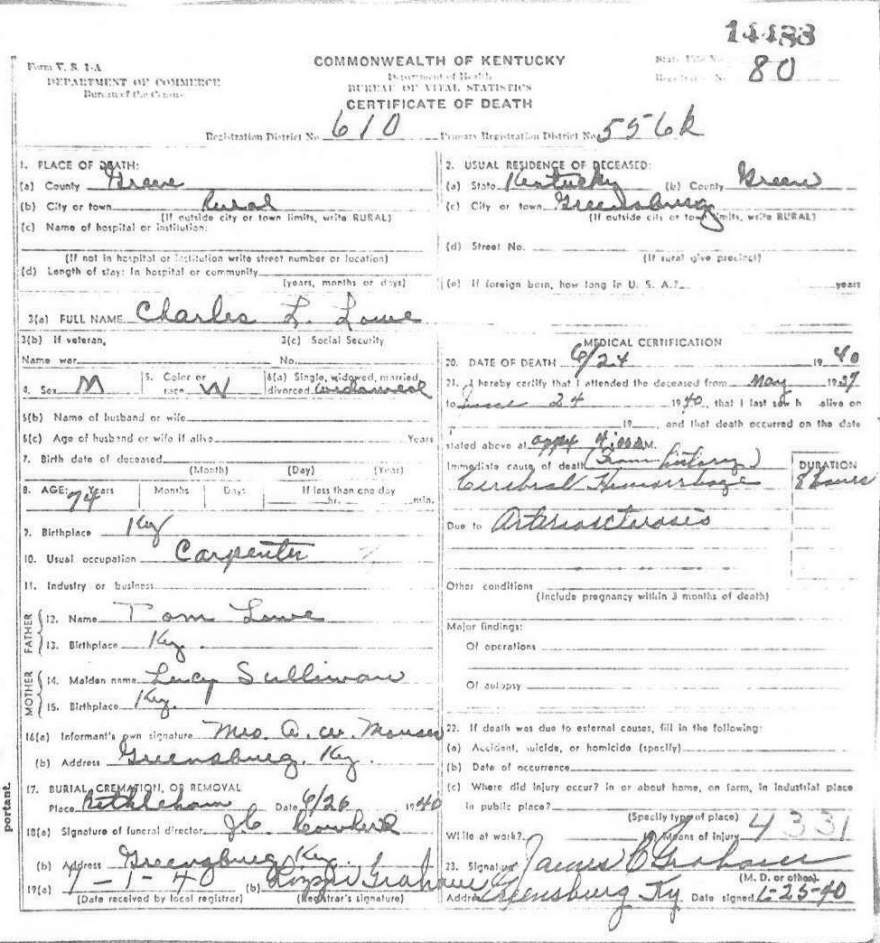 14433
Form V. S. 1-A
DEPARTMENT OF COMMERCE
Bureau of the Census
COMMONWEALTH OF KENTUCKY
Department of Health
BUREAU OF VITAL STATISTICS
CERTIFICATE OF DEATH
State File No.
Registrar's No. 80
Registration District No. 610 Primary Registration District No. 556R
1. PLACE OF DEATH:
(a) County
(b) City or town Rural
(If outside city or town limits, write RURAL)
(c) Name of hospital or institution:
(If not in hospital or institution write street number or location)
(d) Length of stay: In hospital or community
(years, months or days)
2. USUAL RESIDENCE OF DECEASED:
(a) State Kentucky (b) County Green
(c) City or town Greensburg
(If outside city or town limits, write RURAL)
(d) Street No.
(If rural give precinct)
(e) If foreign born, how long in U. S. A.? years
3(a) FULL NAME Charles L. Lowe
3(b) If veteran, 3(c) Social Security
Name war No.
4. Sex M 5. Color or race W 6(a) Single, widowed, married, divorced
6(b) Name of husband or wife
6(c) Age of husband or wife if alive Years
7. Birth date of deceased
(Month) (Day) (Year)
8. AGE: Years 74 Months Days If less than one day hr. min.
9. Birthplace Ky
10. Usual occupation Carpenter
11. Industry or business
FATHER
12. Name Tom Lowe
13. Birthplace Ky.
MOTHER
14. Maiden name Lucy Sullivan
15. Birthplace Ky.
16(a) Informant's own signature Mrs. A. W.
(b) Address Greensburg, Ky.
17. BURIAL, CREMATION, OR REMOVAL
Place Bethlehem Date 6/26 1940
18(a) Signature of funeral director J.C. Cowherd
(b) Address Greensburg Ky.
19(a) 7-1-40 (b) Graham
(Date received by local registrar) (Registrar's signature)
MEDICAL CERTIFICATION
20. DATE OF DEATH 6/24 1940
21. I hereby certify that I attended the deceased from May 1937
to June 24 1940, that I last saw h alive on
19 , and that death occurred on the date
stated above at appx M.
Immediate cause of death (From history)
Cerebral Hemorrhage
DURATION
8 hours
Due to Arteriosclerosis
Other conditions
(Include pregnancy within 3 months of death)
Major findings:
Of operations
Of autopsy
22. If death was due to external causes, fill in the following:
(a) Accident, suicide, or homicide (specify)
(b) Date of occurrence
(c) Where did injury occur? in or about home, on farm, in industrial place
in public place?
(Specify type of place)
While at work? Means of injury 4331
23. Signature James C Graham
(M. D. or other)
Address Greensburg Ky Date signed 6-25-40
portant.